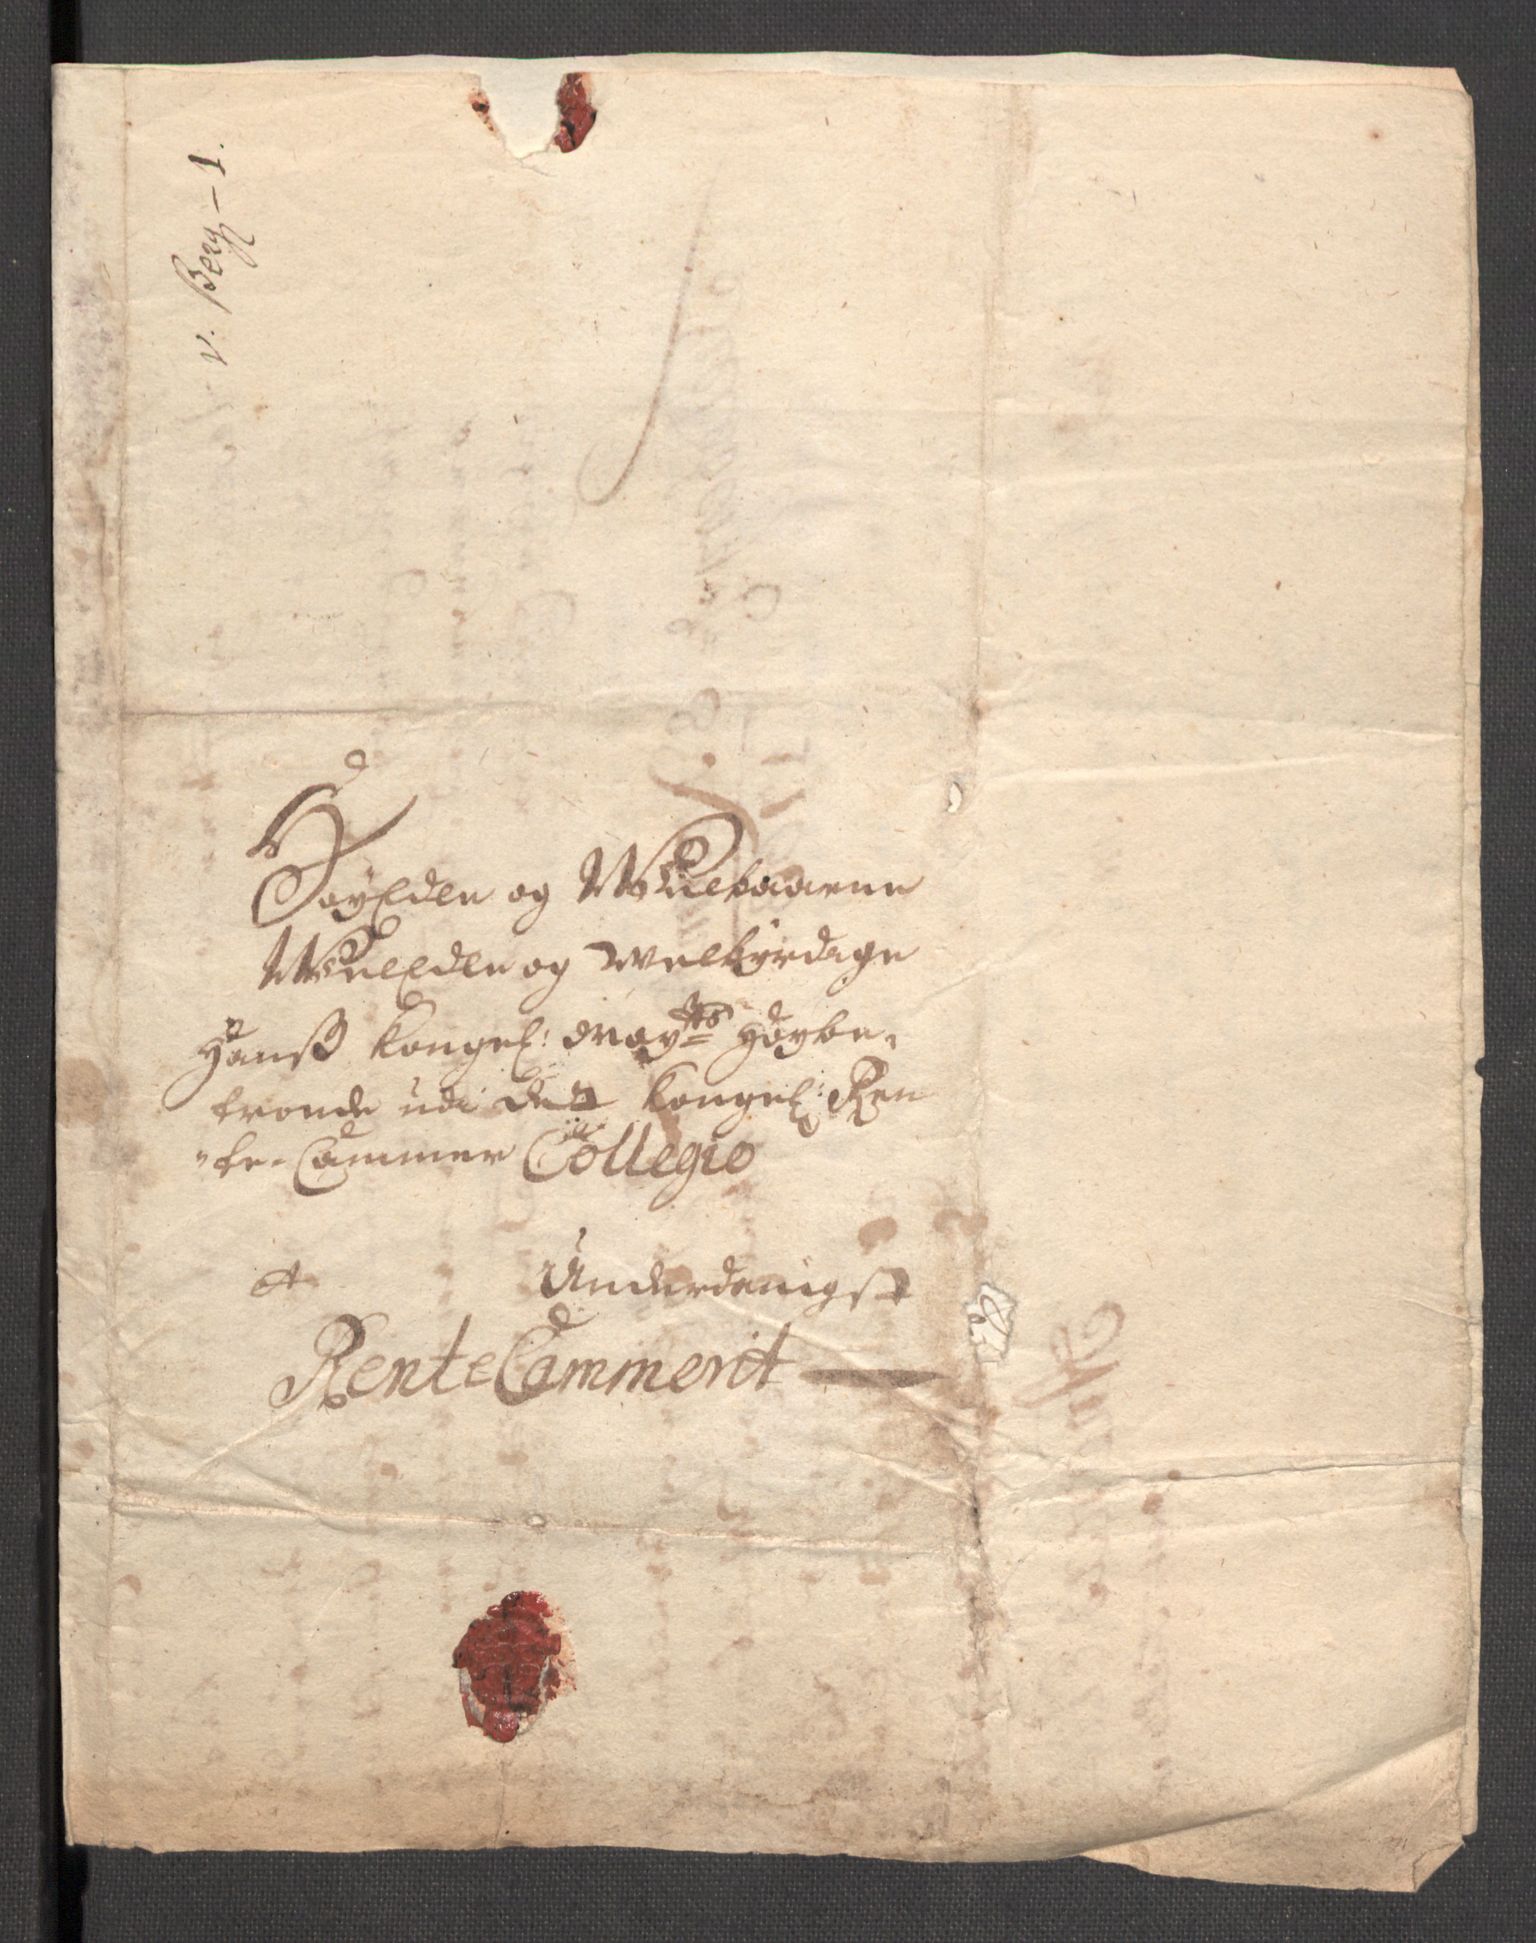 v. Berg – 1.
HøyEdle og Welbaarne
WelEdle og welbyrdige
Hanß Kongel: May^tts Høybe-
troede udi det Kongel: Ren
te-Cammer Collegio
A Underdanigst
RenteCammerit